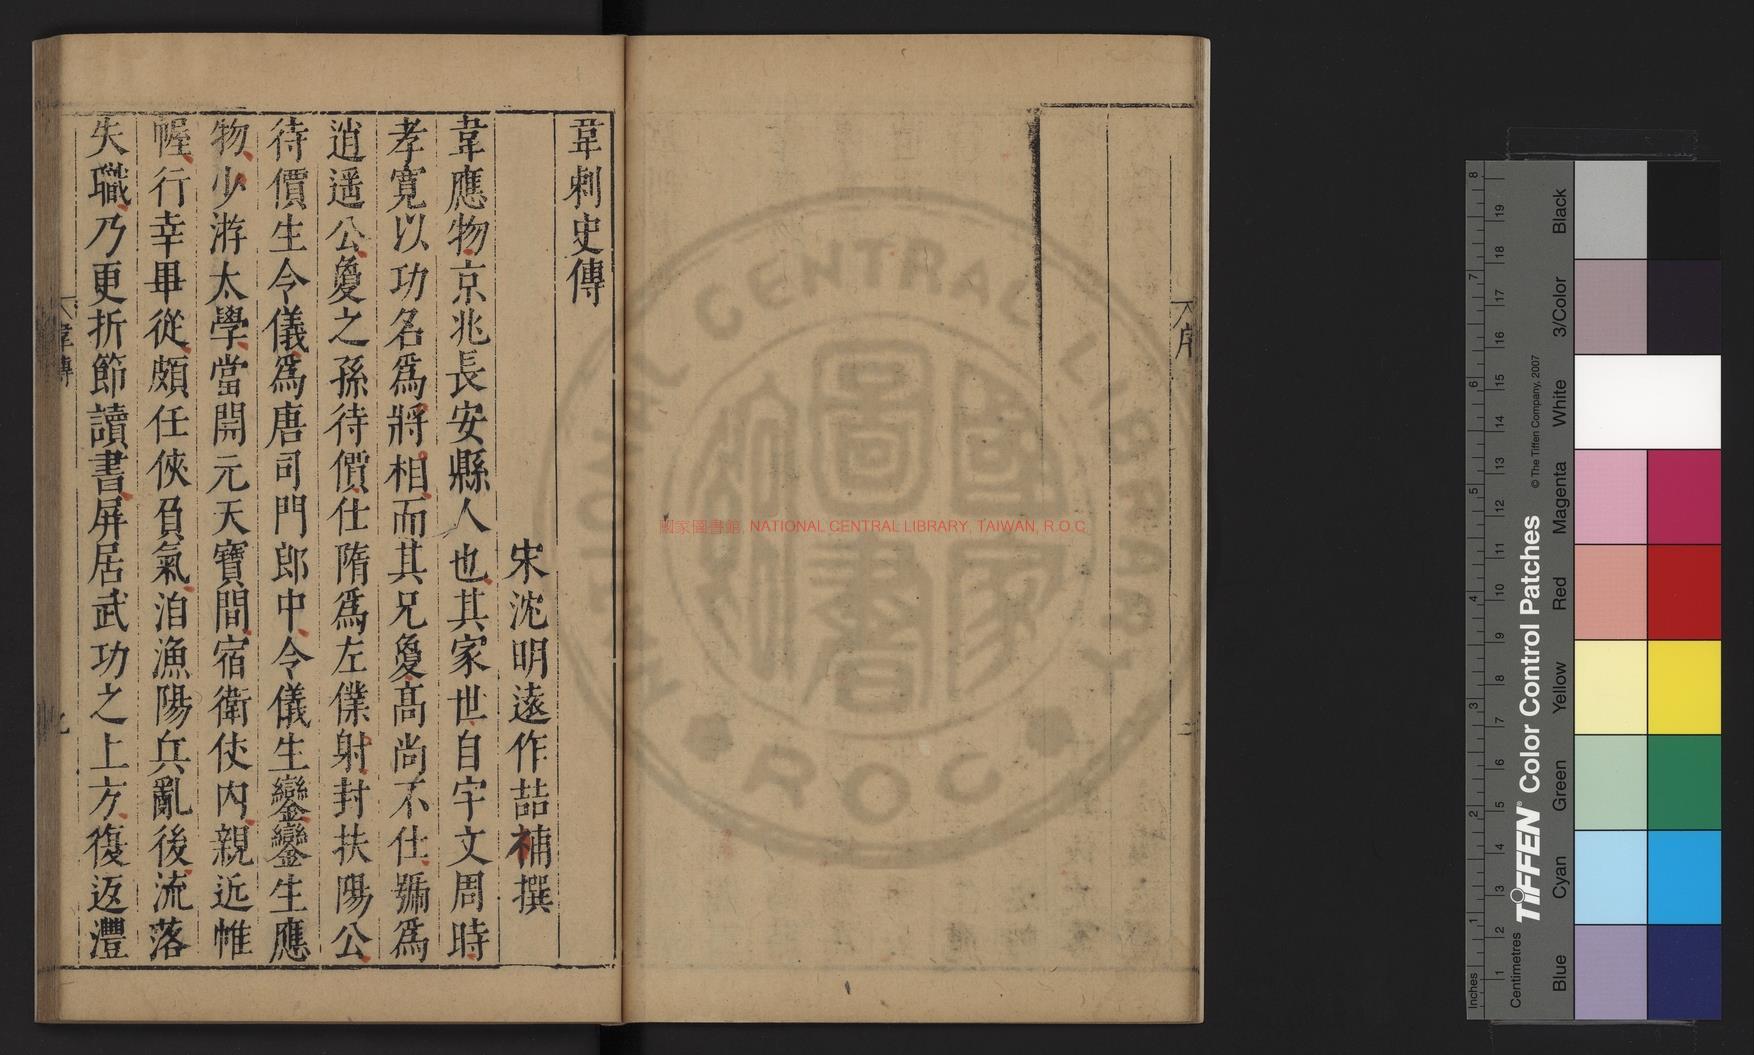 韋刺史傳
宋沈明遠作喆補撰
韋應物京兆長安縣人也其家世自宇文周時
孝寬以功名爲將相而其兄夐高尚不仕號爲
逍遥公夐之孫待價仕隋爲左僕射封扶陽公
待價生令儀爲唐司門郎中令儀生鑾鑾生應
物少游太學當開元天寶間宿衛仗内親近帷
幄行幸畢從頗任俠負氣洎漁陽兵亂後流落
失職乃更折節讀書屏居武功之上方復返灃
韋傳
序
國家圖書館
NATIONAL CENTRAL LIBRARY
R O C
國家圖書館, NATIONAL CENTRAL LIBRARY, TAIWAN, R.O.C
TIFFEN® Color Control Patches
© The Tiffen Company, 2007
Centimetres
Inches
Blue
Cyan
Green
Yellow
Red
Magenta
White
3/Color
Black
1 2 3 4 5 6 7 8
1 2 3 4 5 6 7 8 9 10 11 12 13 14 15 16 17 18 19